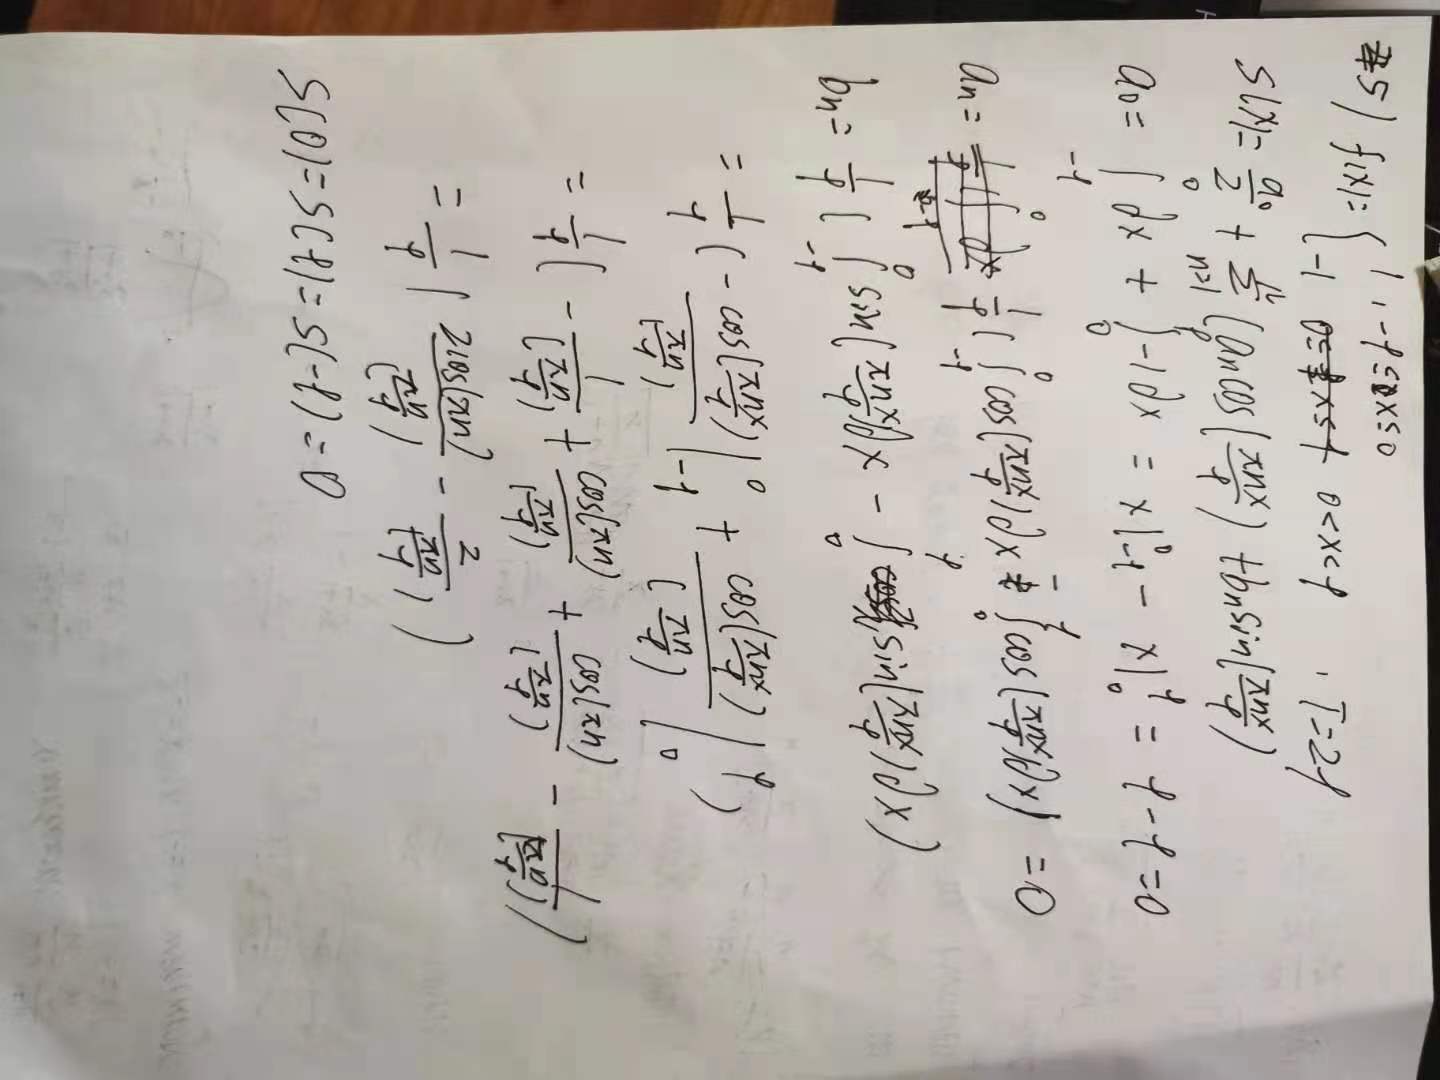 5) f(x)= { 1 , -l ≤ x ≤ 0
-1 0<x<l , T=2l
S(x)= a0/2 + Σ n=1 (an cos(πnx/l) + bn sin(πnx/l)
a0= ∫_{-l}^{0} dx + ∫_{0}^{l} -1 dx = x|_{-l}^{0} - x|_{0}^{l} = l-l=0
an= 1/l ( ∫_{-l}^{0} cos(πnx/l)dx - ∫_{0}^{l} cos(πnx/l)dx) = 0
bn= 1/l ( ∫_{-l}^{0} sin(πnx/l)dx - ∫_{0}^{l} sin(πnx/l)dx)
= 1/l ( - cos(πnx/l)/(πn/l) |_{-l}^{0} + cos(πnx/l)/(πn/l) |_{0}^{l} )
= 1/l ( - 1/(πn/l) + cos(πn)/(πn/l) + cos(πn)/(πn/l) - 1/(πn/l) )
= 1/l ( 2cos(πn)/(πn/l) - 2/(πn/l) )
S(0)=S(l)=S(-l)=0